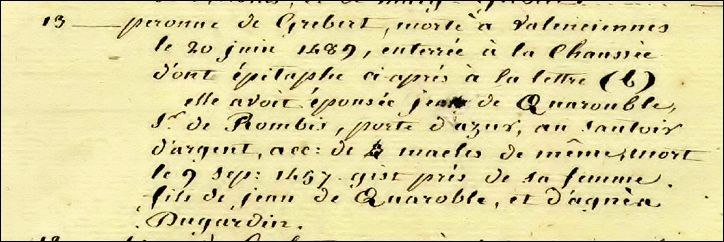 13 — peronne de Grebert, morte à Valenciennes
le 20 juin 1489, enterrée à la Chaussée
d'ont épitaphe ci après à la lettre (b)
elle avoit épousée jean de Quarouble,
Sr. de Rombis, porte d'azur, au Sautoir
d'argent, acc: de 4 macles de même, mort
le 9 sep: 1457 gist près de sa femme.
fils de jean de Quaroble, et d'agnès
Dugardin.